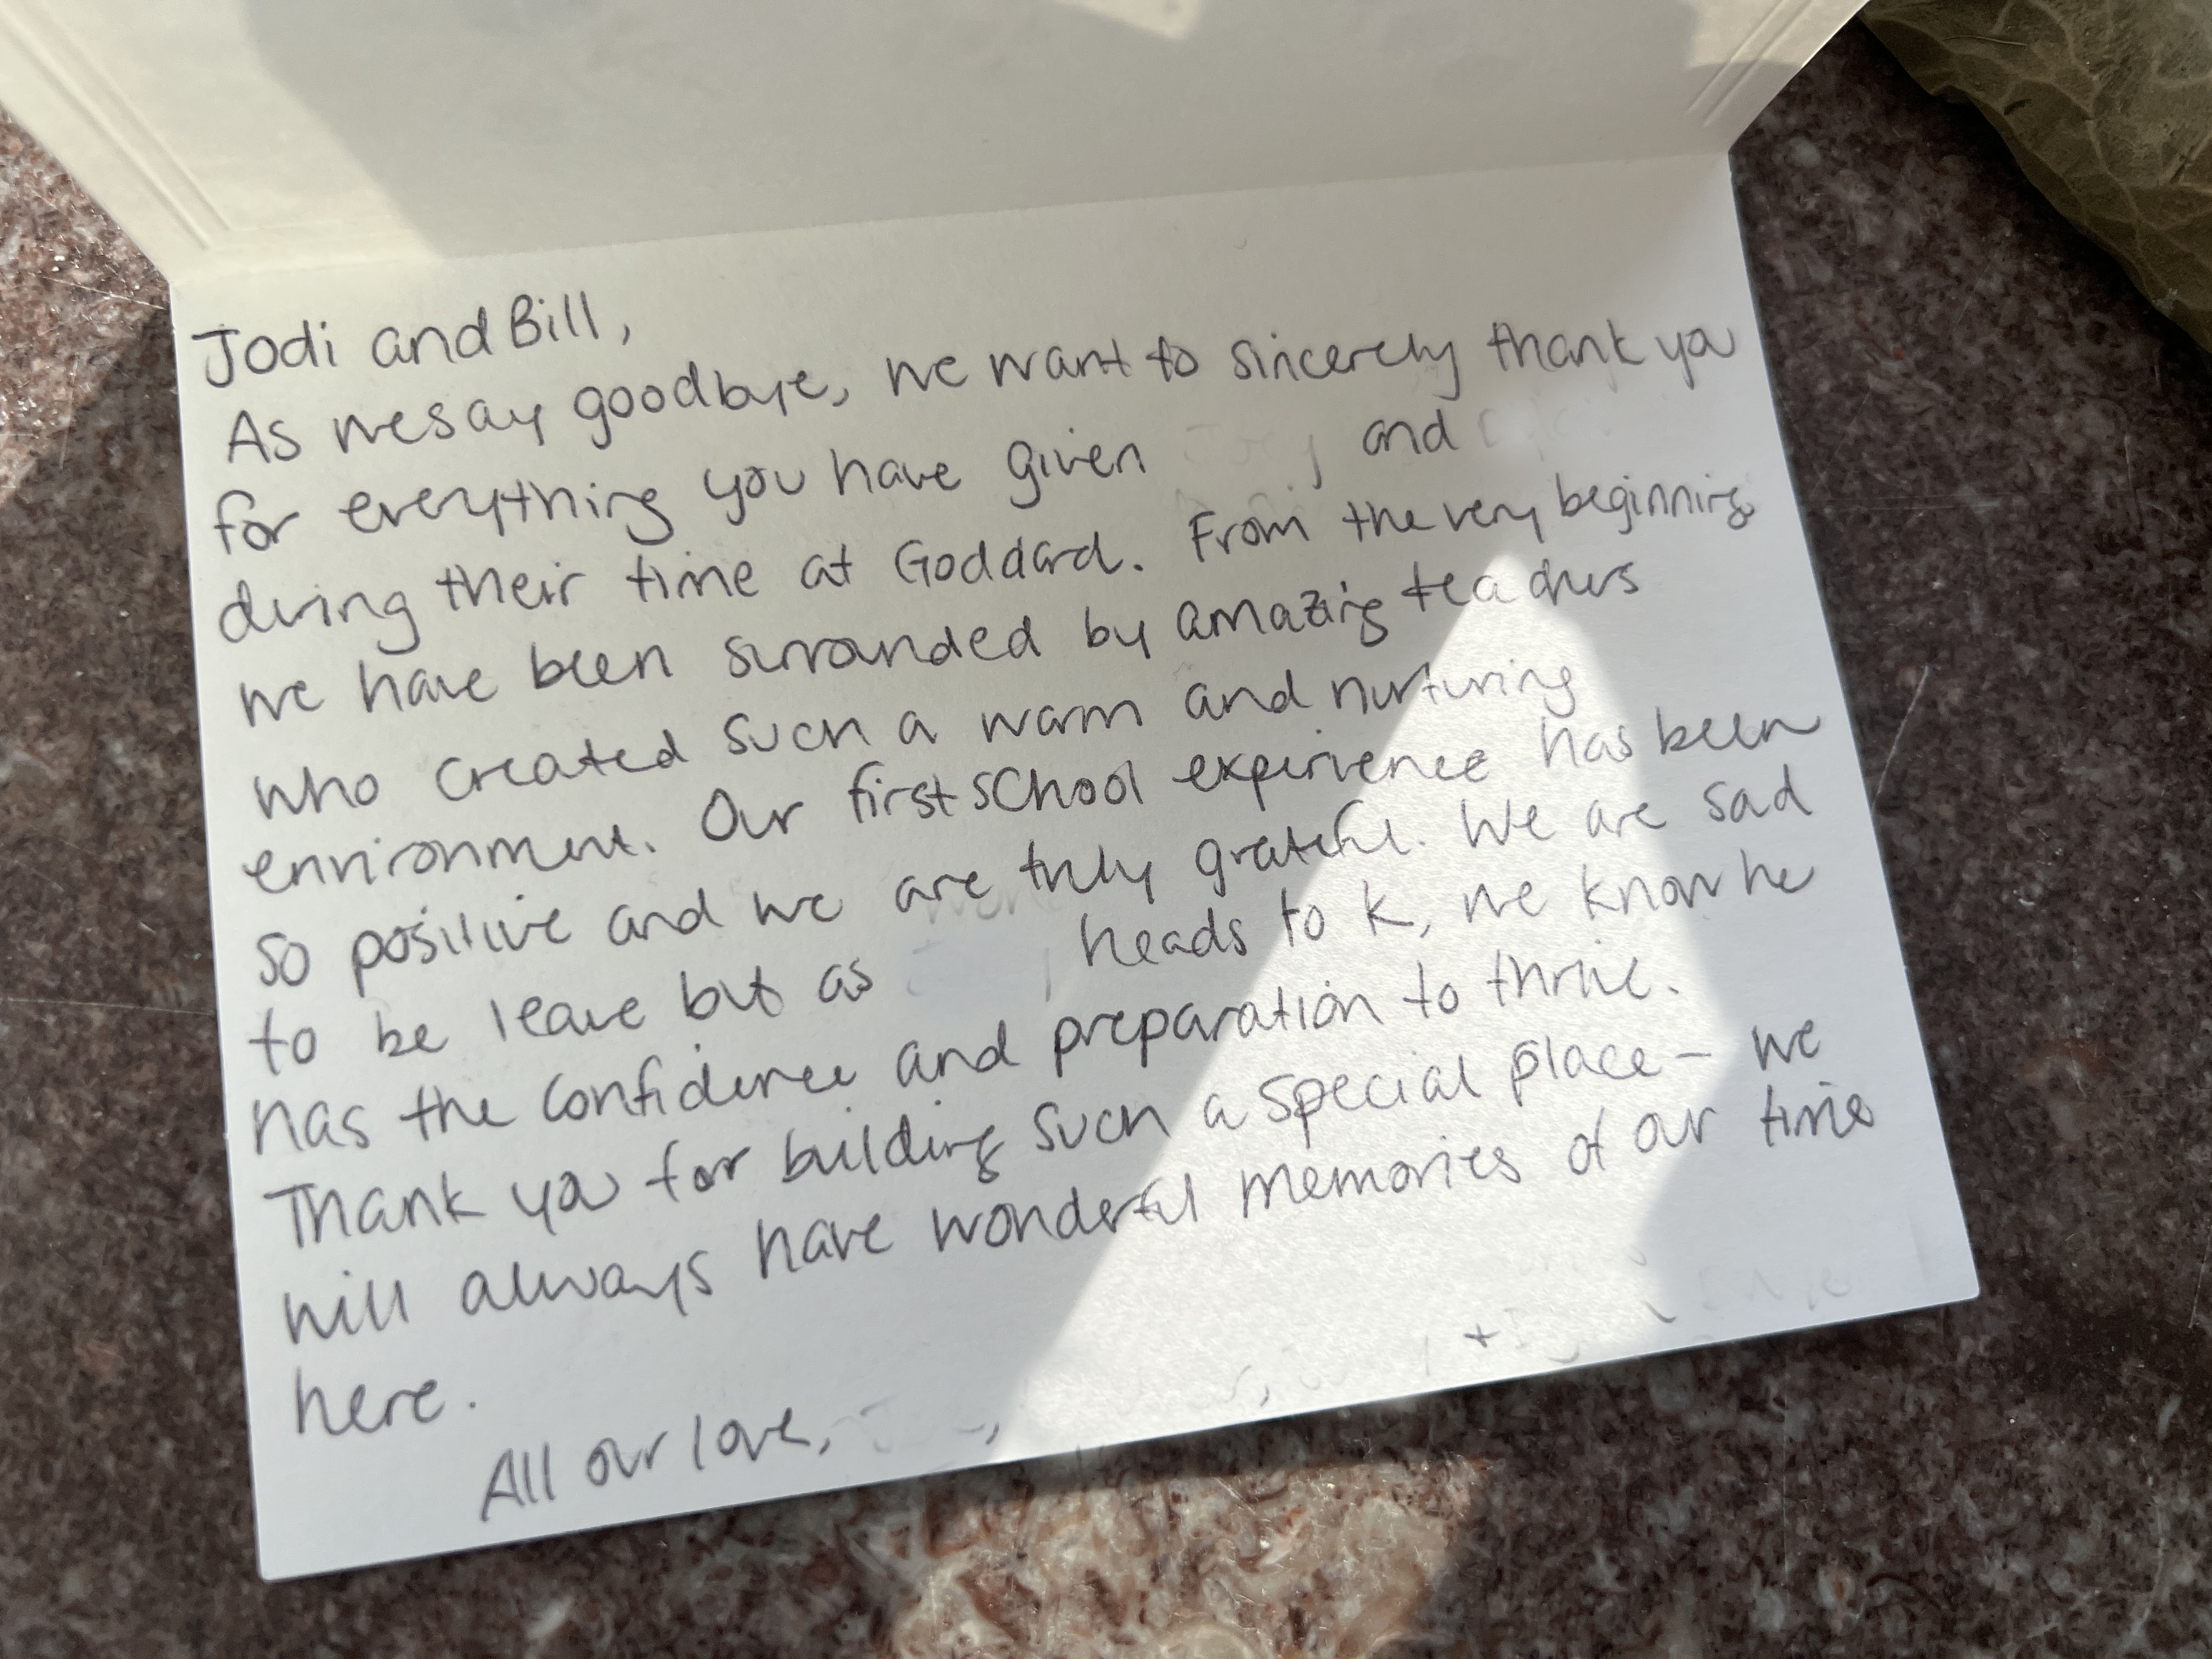 Jodi and Bill,
As we say goodbye, we want to sincerely thank you
for everything you have given and
during their time at Goddard. From the very beginning
we have been surrounded by amazing teachers
who created such a warm and nurturing
environment. Our first school experience has been
so positive and we are truly grateful. We are sad
to be leave but as heads to K, we know he
has the confidence and preparation to thrive.
Thank you for building such a special place – we
will always have wonderful memories of our time
here.
All our love, +